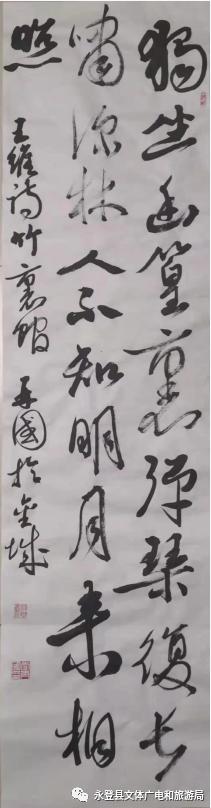 獨坐幽篁裏彈琴復長
嘯深林人不知明月來相
照
王維詩竹裏館 再國於金城
永登县文体广电和旅游局